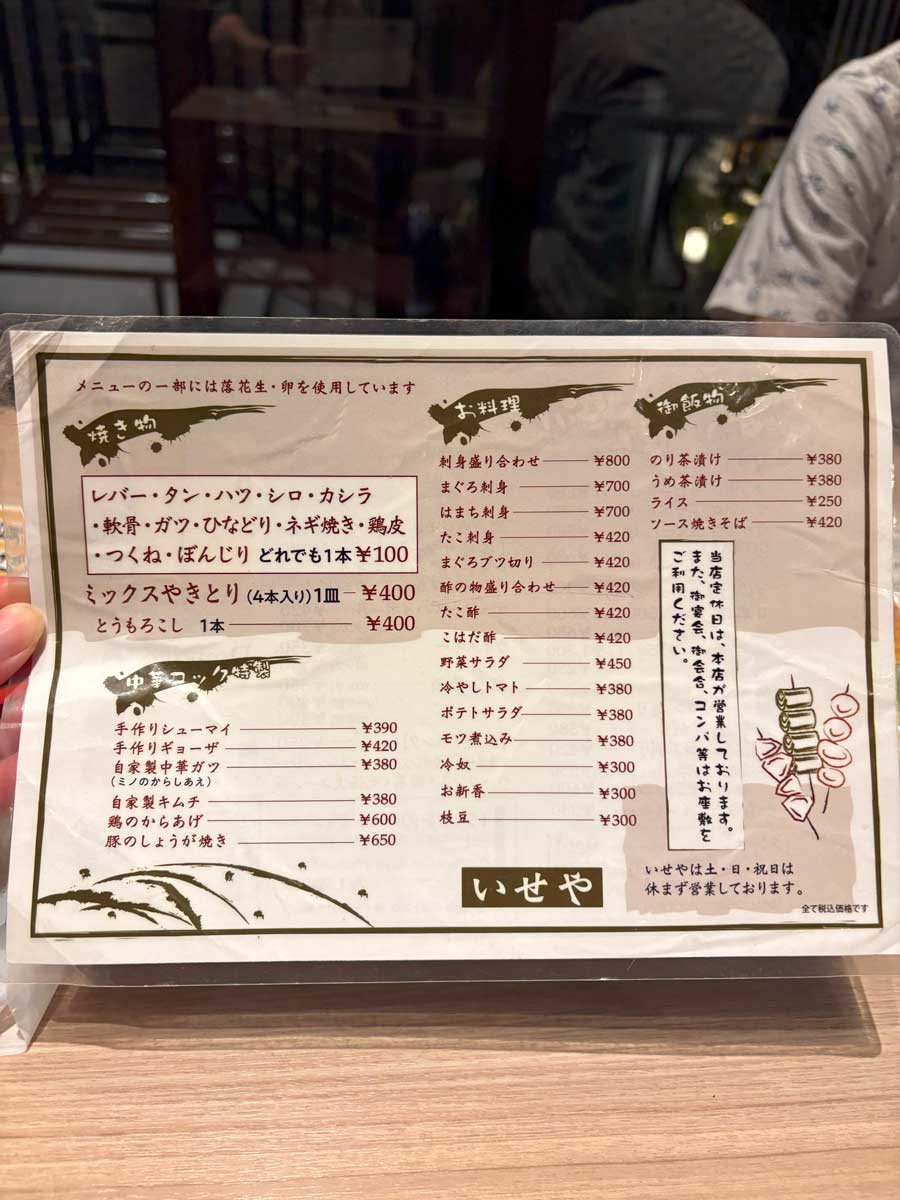 メニューの一部には落花生・卵を使用しています
焼き物
レバー・タン・ハツ・シロ・カシラ
・軟骨・ガツ・ひなどり・ネギ焼き・鶏皮
・つくね・ぼんじり どれでも1本¥100
ミックスやきとり(4本入り)1皿 ¥400
とうもろこし 1本 ¥400
中華コック特製
手作りシューマイ ¥390
手作りギョーザ ¥420
自家製中華ガツ ¥380
(ミノのからしあえ)
自家製キムチ ¥380
鶏のからあげ ¥600
豚のしょうが焼き ¥650
お料理
刺身盛り合わせ ¥800
まぐろ刺身 ¥700
はまち刺身 ¥700
たこ刺身 ¥420
まぐろブツ切り ¥420
酢の物盛り合わせ ¥420
たこ酢 ¥420
こはだ酢 ¥420
野菜サラダ ¥450
冷やしトマト ¥380
ポテトサラダ ¥380
モツ煮込み ¥380
冷奴 ¥300
お新香 ¥300
枝豆 ¥300
いせや
御飯物
のり茶漬け ¥380
うめ茶漬け ¥380
ライス ¥250
ソース焼きそば ¥420
当店定休日は、本店が営業しております。
また、御宴会、御会合、コンパ等はお座敷を
ご利用ください。
いせやは土・日・祝日は
休まず営業しております。
全て税込価格です